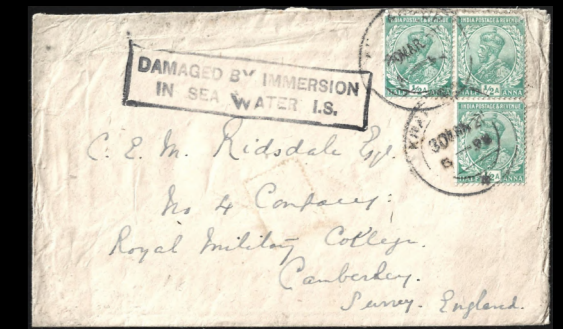 DAMAGED BY IMMERSION
IN SEA WATER I.S.
INDIA POSTAGE & REVENUE
INDIA POSTAGE & REVENUE
HALF ANNA
HALF ANNA
INDIA POSTAGE & REVENUE
HALF ANNA
30
C. E. M. Ridsdale Esq.
No 4 Company:
Royal Military College.
Camberley.
Surrey. England.